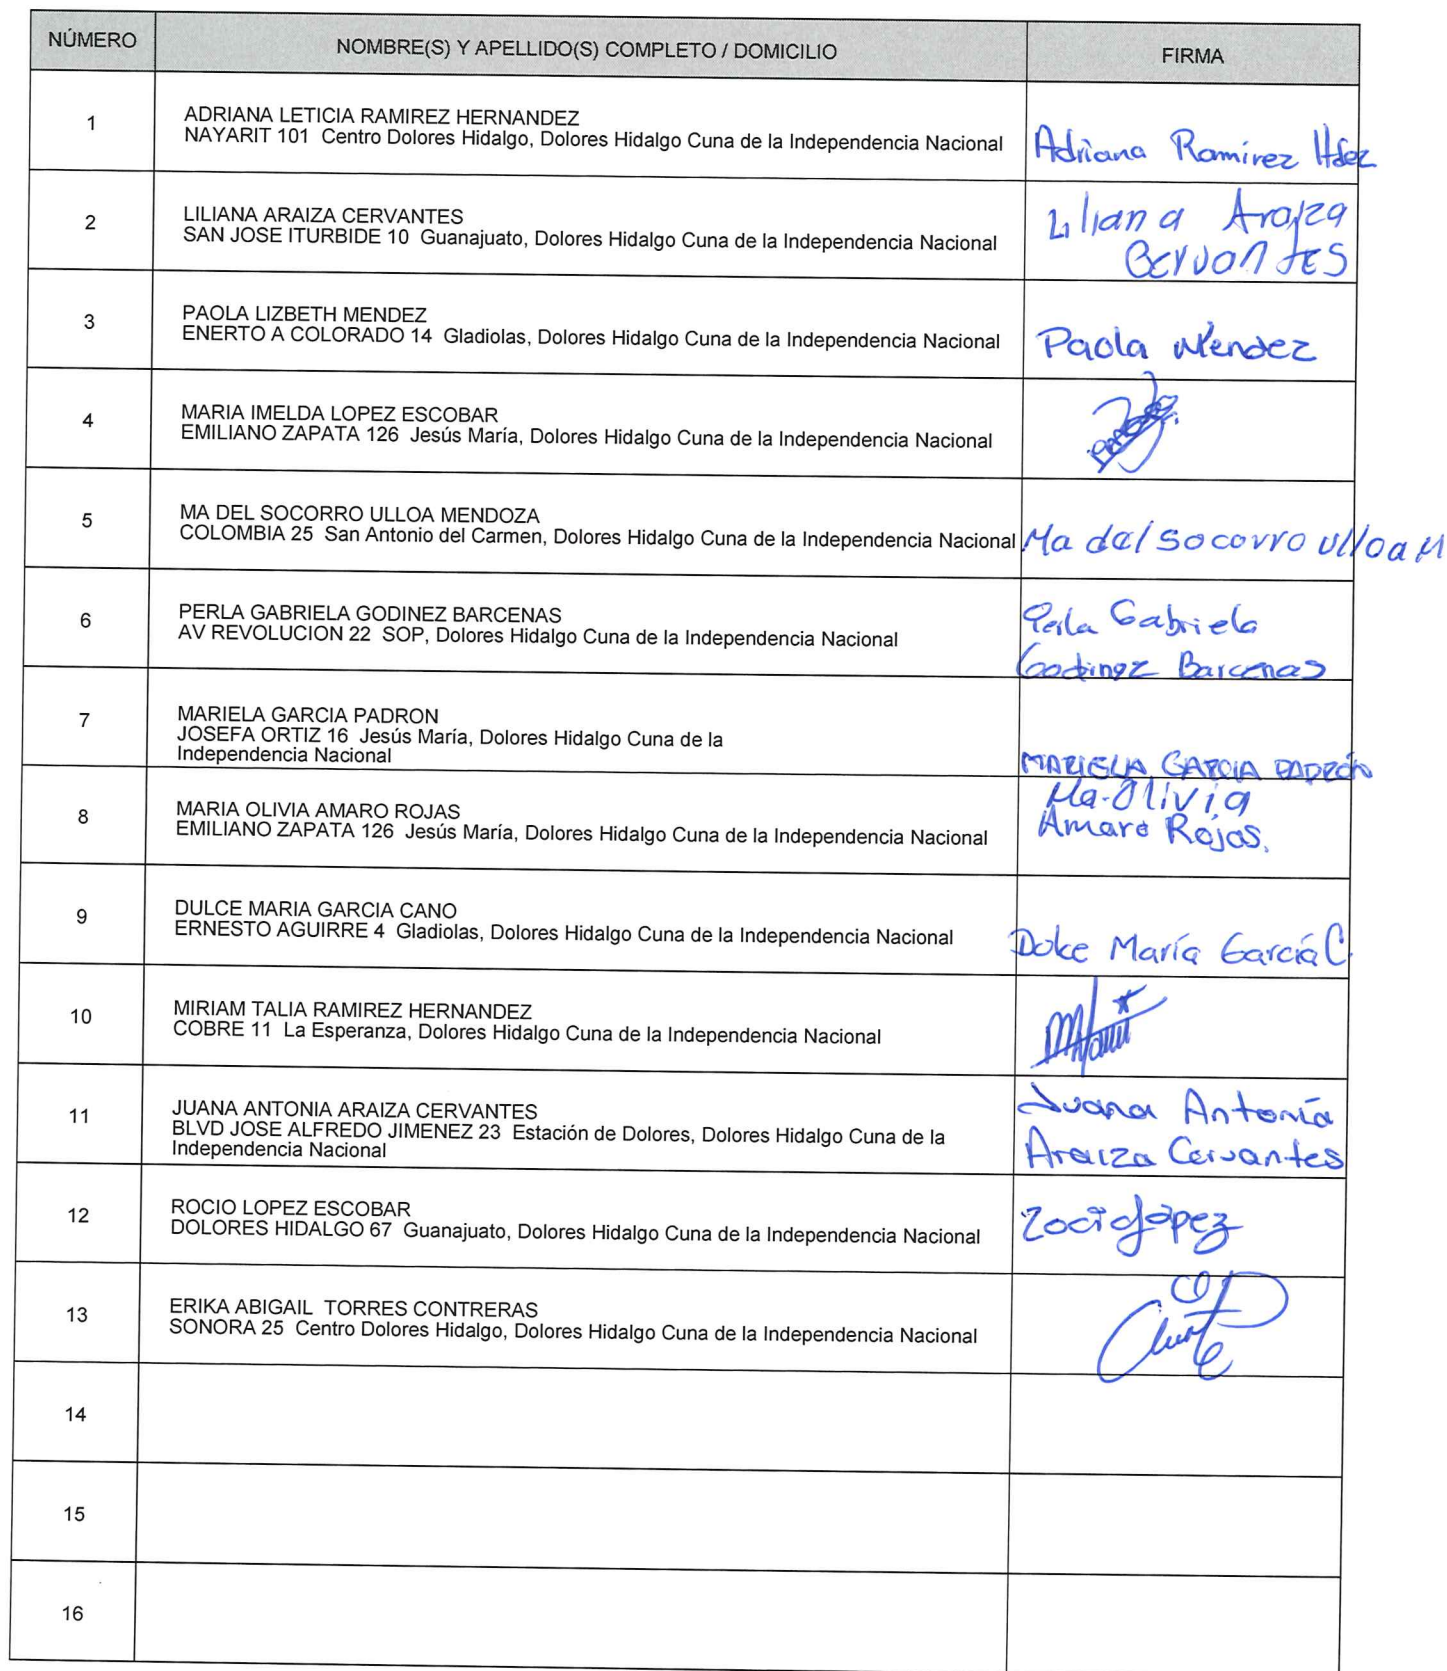 NÚMERO NOMBRE(S) Y APELLIDO(S) COMPLETO / DOMICILIO FIRMA
1
ADRIANA LETICIA RAMIREZ HERNANDEZ
NAYARIT 101 Centro Dolores Hidalgo, Dolores Hidalgo Cuna de la Independencia Nacional
Adriana Ramírez Hdez
2
LILIANA ARAIZA CERVANTES
SAN JOSE ITURBIDE 10 Guanajuato, Dolores Hidalgo Cuna de la Independencia Nacional
Liliana Araiza
Cervantes
3
PAOLA LIZBETH MENDEZ
ENERTO A COLORADO 14 Gladiolas, Dolores Hidalgo Cuna de la Independencia Nacional
Paola Mendez
4
MARIA IMELDA LOPEZ ESCOBAR
EMILIANO ZAPATA 126 Jesús María, Dolores Hidalgo Cuna de la Independencia Nacional
5
MA DEL SOCORRO ULLOA MENDOZA
COLOMBIA 25 San Antonio del Carmen, Dolores Hidalgo Cuna de la Independencia Nacional
Ma del Socorro Ulloa M
6
PERLA GABRIELA GODINEZ BARCENAS
AV REVOLUCION 22 SOP, Dolores Hidalgo Cuna de la Independencia Nacional
Perla Gabriela
Godinez Barcenas
7
MARIELA GARCIA PADRON
JOSEFA ORTIZ 16 Jesús María, Dolores Hidalgo Cuna de la
Independencia Nacional
MARIELA GARCIA PADRÓN
8
MARIA OLIVIA AMARO ROJAS
EMILIANO ZAPATA 126 Jesús María, Dolores Hidalgo Cuna de la Independencia Nacional
Ma-Olivia
Amaro Rojas.
9
DULCE MARIA GARCIA CANO
ERNESTO AGUIRRE 4 Gladiolas, Dolores Hidalgo Cuna de la Independencia Nacional
Dulce María García C.
10
MIRIAM TALIA RAMIREZ HERNANDEZ
COBRE 11 La Esperanza, Dolores Hidalgo Cuna de la Independencia Nacional
11
JUANA ANTONIA ARAIZA CERVANTES
BLVD JOSE ALFREDO JIMENEZ 23 Estación de Dolores, Dolores Hidalgo Cuna de la
Independencia Nacional
Juana Antonía
Araiza Cervantes
12
ROCIO LOPEZ ESCOBAR
DOLORES HIDALGO 67 Guanajuato, Dolores Hidalgo Cuna de la Independencia Nacional
Rocio López
13
ERIKA ABIGAIL TORRES CONTRERAS
SONORA 25 Centro Dolores Hidalgo, Dolores Hidalgo Cuna de la Independencia Nacional
14
15
16